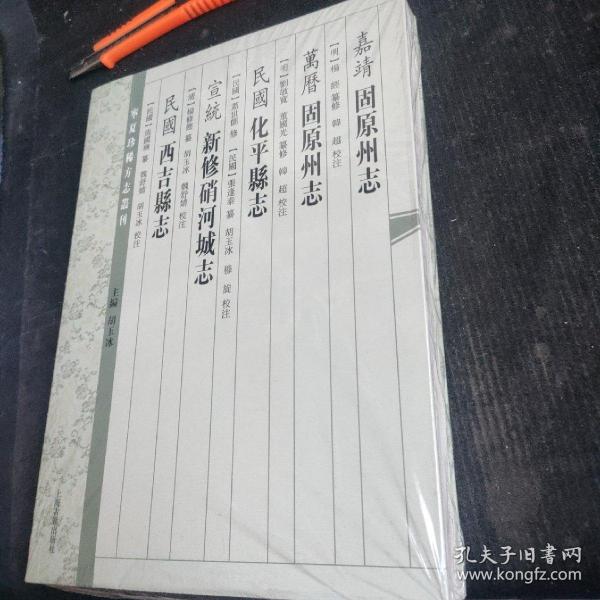 嘉靖 固原州志
【明】楊 經 纂修 韓 超 校注
萬曆 固原州志
【明】劉敏寬 董國光 纂修 韓 超 校注
民國 化平縣志
【民國】蓋世儒 修 【民國】張逢泰 纂 胡玉冰 穆 旋 校注
宣統 新修硝河城志
【清】楊修德 纂 胡玉冰 魏舒婧 校注
民國 西吉縣志
【民國】 纂 魏舒婧 胡玉冰 校注
寧夏珍稀方志叢刊
主編 胡玉冰
上海古籍出版社
孔夫子旧書网
www.kongfz.com